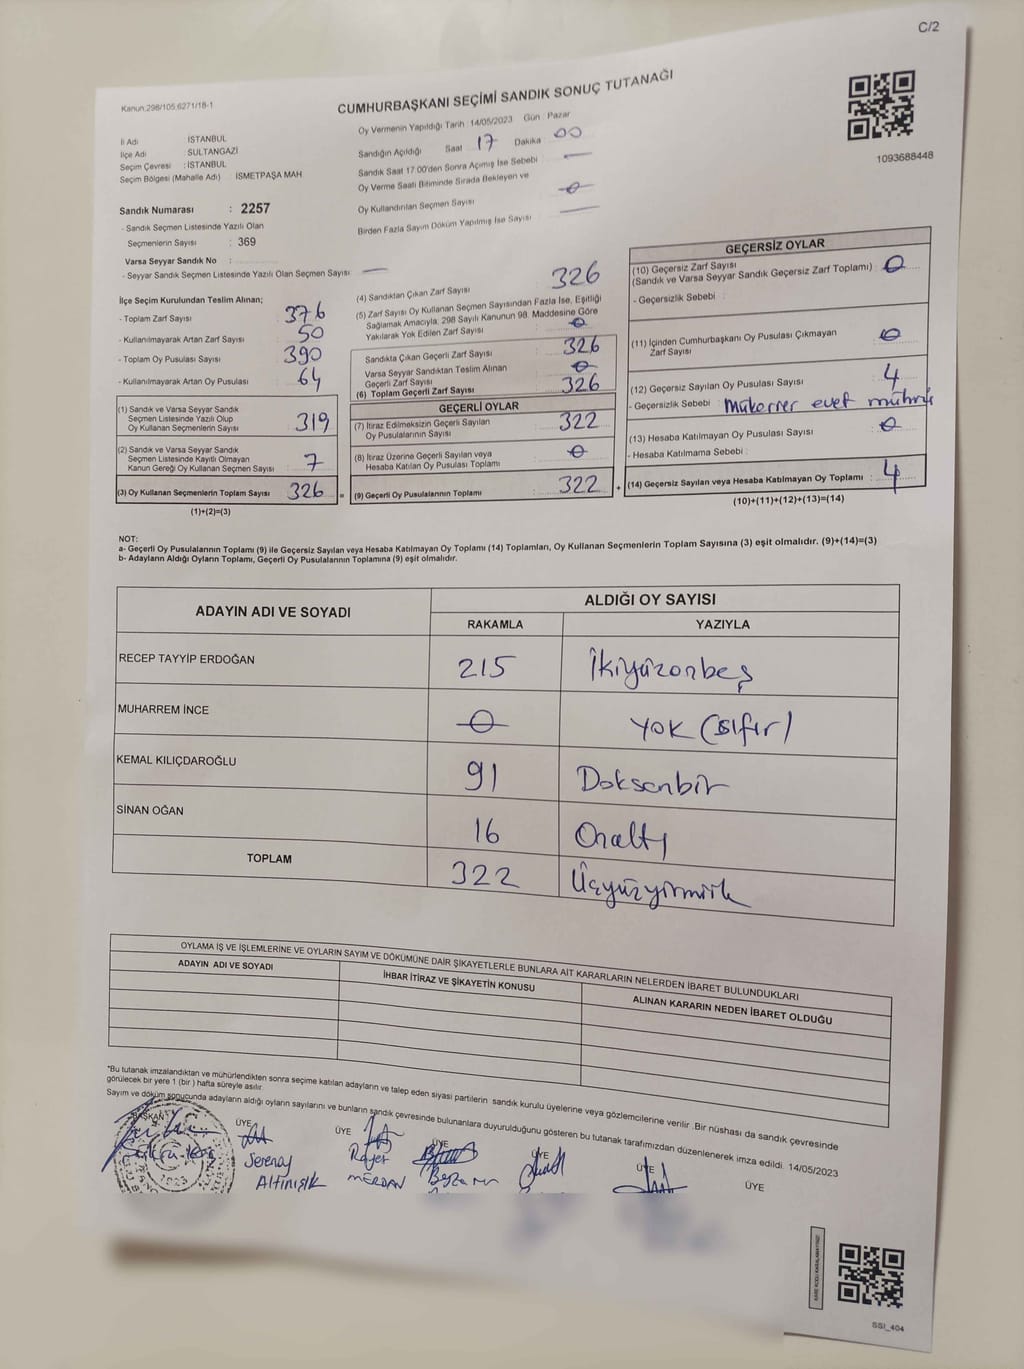 C/2
Kanun.298/105,6271/18-1
CUMHURBAŞKANI SEÇİMİ SANDIK SONUÇ TUTANAĞI
1093688448
İl Adı : İSTANBUL
İlçe Adı : SULTANGAZİ
Seçim Çevresi : İSTANBUL
Seçim Bölgesi (Mahalle Adı) : İSMETPAŞA MAH
Sandık Numarası : 2257
- Sandık Seçmen Listesinde Yazılı Olan
Seçmenlerin Sayısı : 369
Varsa Seyyar Sandık No :
- Seyyar Sandık Seçmen Listesinde Yazılı Olan Seçmen Sayısı —
Oy Vermenin Yapıldığı Tarih 14/05/2023 Gün Pazar
Sandığın Açıldığı Saat 17 Dakika 00
Sandık Saat 17:00'den Sonra Açımış İse Sebebi —
Oy Verme Saati Bitiminde Sırada Bekleyen ve
Oy Kullandırılan Seçmen Sayısı 0
Birden Fazla Sayım Döküm Yapılmış İse Sayısı —
İlçe Seçim Kurulundan Teslim Alınan;
- Toplam Zarf Sayısı 376
- Kullanılmayarak Artan Zarf Sayısı 50
- Toplam Oy Pusulası Sayısı 390
- Kullanılmayarak Artan Oy Pusulası 64
(1) Sandık ve Varsa Seyyar Sandık
Seçmen Listesinde Yazılı Olup
Oy Kullanan Seçmenlerin Sayısı 319
(2) Sandık ve Varsa Seyyar Sandık
Seçmen Listesinde Kayıtlı Olmayan
Kanun Gereği Oy Kullanan Seçmen Sayısı 7
(3) Oy Kullanan Seçmenlerin Toplam Sayısı 326
(1)+(2)=(3)
(4) Sandıktan Çıkan Zarf Sayısı 326
(5) Zarf Sayısı Oy Kullanan Seçmen Sayısından Fazla İse, Eşitliği
Sağlamak Amacıyla, 298 Sayılı Kanunun 98. Maddesine Göre
Yakılarak Yok Edilen Zarf Sayısı 0
Sandıkta Çıkan Geçerli Zarf Sayısı 326
Varsa Seyyar Sandıktan Teslim Alınan
Geçerli Zarf Sayısı 0
(6) Toplam Geçerli Zarf Sayısı 326
GEÇERLİ OYLAR
(7) İtiraz Edilmeksizin Geçerli Sayılan
Oy Pusulalarının Sayısı 322
(8) İtiraz Üzerine Geçerli Sayılan veya
Hesaba Katılan Oy Pusulası Toplamı 0
= (9) Geçerli Oy Pusulalarının Toplamı 322
GEÇERSİZ OYLAR
(10) Geçersiz Zarf Sayısı
(Sandık ve Varsa Seyyar Sandık Geçersiz Zarf Toplamı) : 0
- Geçersizlik Sebebi :
(11) İçinden Cumhurbaşkanı Oy Pusulası Çıkmayan
Zarf Sayısı : 0
(12) Geçersiz Sayılan Oy Pusulası Sayısı : 4
- Geçersizlik Sebebi : Mükerrer evet mührü
(13) Hesaba Katılmayan Oy Pusulası Sayısı : 0
- Hesaba Katılmama Sebebi :
+ (14) Geçersiz Sayılan veya Hesaba Katılmayan Oy Toplamı : 4
(10)+(11)+(12)+(13)=(14)
NOT:
a- Geçerli Oy Pusulalarının Toplamı (9) ile Geçersiz Sayılan veya Hesaba Katılmayan Oy Toplamı (14) Toplamları, Oy Kullanan Seçmenlerin Toplam Sayısına (3) eşit olmalıdır. (9)+(14)=(3)
b- Adayların Aldığı Oyların Toplamı, Geçerli Oy Pusulalarının Toplamına (9) eşit olmalıdır.
ADAYIN ADI VE SOYADI ALDIĞI OY SAYISI
RAKAMLA YAZIYLA
RECEP TAYYİP ERDOĞAN 215 İkiyüzonbeş
MUHARREM İNCE 0 YOK (Sıfır)
KEMAL KILIÇDAROĞLU 91 Doksanbir
SİNAN OĞAN 16 Onaltı
TOPLAM 322 Üçyüzyirmiik
OYLAMA İŞ VE İŞLEMLERİNE VE OYLARIN SAYIM VE DÖKÜMÜNE DAİR ŞİKAYETLERLE BUNLARA AİT KARARLARIN NELERDEN İBARET BULUNDUKLARI
ADAYIN ADI VE SOYADI İHBAR İTİRAZ VE ŞİKAYETİN KONUSU ALINAN KARARIN NEDEN İBARET OLDUĞU
*Bu tutanak imzalandıktan ve mühürlendikten sonra seçime katılan adayların ve talep eden siyasi partilerin sandık kurulu üyelerine veya gözlemcilerine verilir .Bir nüshası da sandık çevresinde
görülecek bir yere 1 (bir ) hafta süreyle asılır.
Sayım ve döküm sonucunda adayların aldığı oyların sayılarını ve bunların sandık çevresinde bulunanlara duyurulduğunu gösteren bu tutanak tarafımızdan düzenlenerek imza edildi. 14/05/2023
BAŞKAN ÜYE ÜYE ÜYE ÜYE ÜYE ÜYE
Serenay
Altınışık
MERDAN
1923
KARE KODU KARALAMAYINIZ!
SSI_404